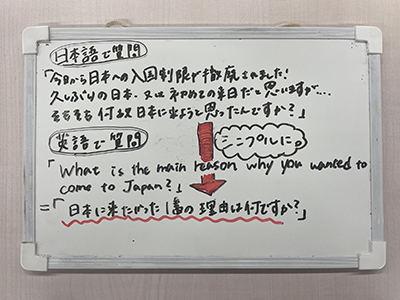 日本語で質問
「今日から日本への入国制限が撤廃されました!
久しぶりの日本、又は初めての来日だと思いますが...
そもそも何故日本に来ようと思ったんですか?」
英語で質問
シンプルに。
「What is the main reason why you wanted to
come to Japan?」
=「日本に来たかった1番の理由は何ですか?」